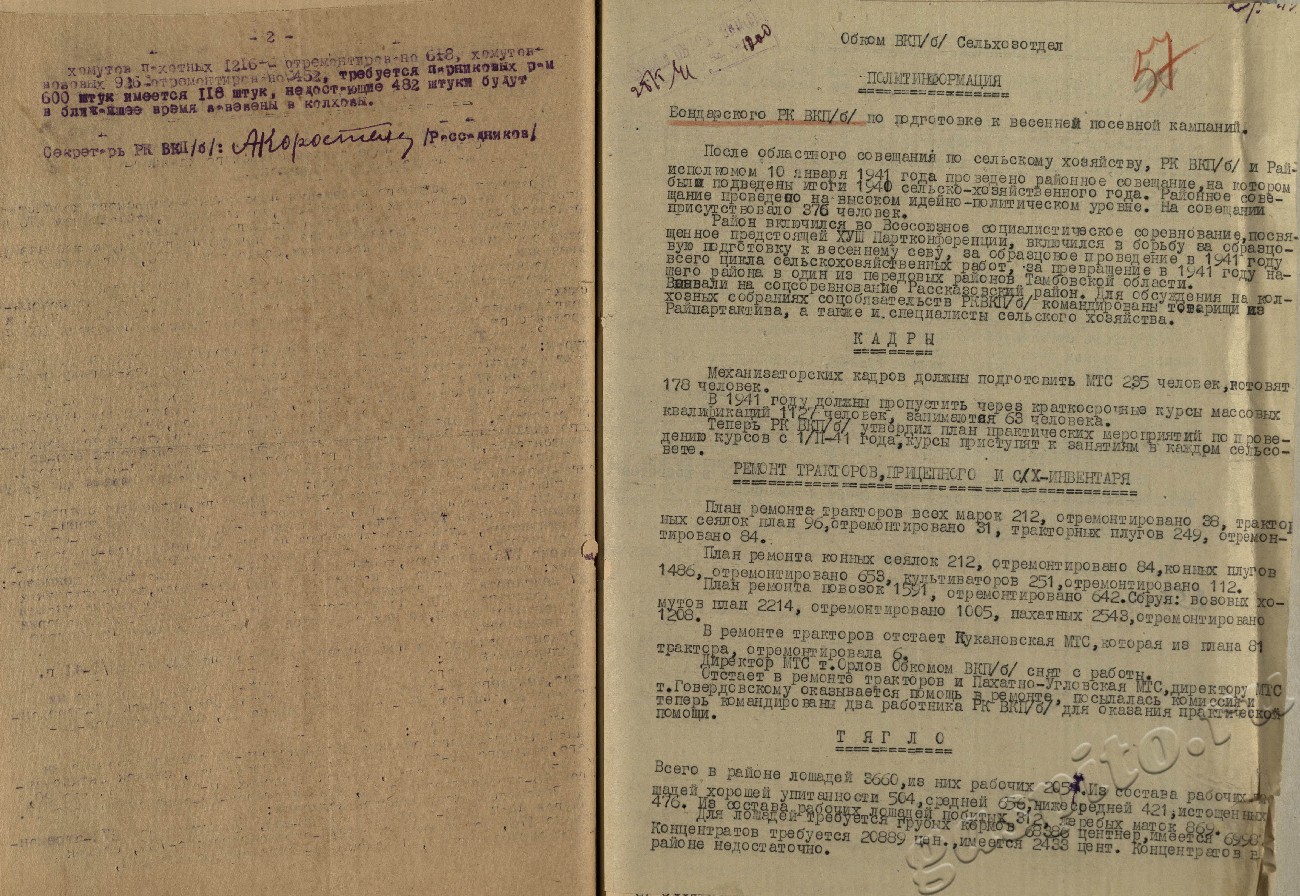 - 2 -
хомутов пахотных 1216 - отремонтировано 618, хомутов
возовых 926 отремонтировано 452, требуется парниковых рам
600 штук имеется 118 штук, недостающие 482 штуки будут
в ближайшее время завезены в колхозы.
Секретарь РК ВКП/б/: /Рассадников/
57
Обком ВКП/б/ Сельхозотдел
ПОЛИТИНФОРМАЦИЯ
Бондарского РК ВКП/б/ по подготовке к весенней посевной кампаний.
После областного совещания по сельскому хозяйству, РК ВКП/б/ и Рай-
исполкомом 10 января 1941 года проведено районное совещание,на котором
были подведены итоги 1940 сельско-хозяйственного года. Районное сове-
щание проведено на высоком идейно-политическом уровне. На совещании
присутствовало 376 человек.
Район включился во Всесоюзное социалистическое соревнование,посвя-
щенное предстоящей ХУШ Партконференции, включился в борьбу за образцо-
вую подготовку к весеннему севу, за образцовое проведение в 1941 году
всего цикла сельскохозяйственных работ, за превращение в 1941 году на-
шего района в один из передовых районов Тамбовской области.
Вызвали на соцсоревнование Рассказовский район. Для обсуждения на кол-
хозных собраниях соцобязательств РКВКП/б/ командированы товарищи из
Райпартактива, а также и специалисты сельского хозяйства.
КАДРЫ
Механизаторских кадров должны подготовить МТС 235 человек,готовят
178 человек.
В 1941 году должны пропустить через краткосрочные курсы массовых
квалификаций 1127 человек, занимаются 63 человека.
Теперь РК ВКП/б/ утвердил план практических мероприятий по прове-
дению курсов с 1/П-41 года,курсы приступят к занятиям в каждом сельсо-
вете.
РЕМОНТ ТРАКТОРОВ,ПРИЦЕПНОГО И С/Х-ИНВЕНТАРЯ
План ремонта тракторов всех марок 212, отремонтировано 38, трактор
ных сеялок план 96,отремонтировано 31, тракторных плугов 249, отремон-
тировано 84.
План ремонта конных сеялок 212, отремонтировано 84,конных плугов
1486, отремонтировано 653, культиваторов 251,отремонтировано 112.
План ремонта повозок 1591, отремонтировано 642.Сбруя: возовых хо-
мутов план 2214, отремонтировано 1005, пахатных 2543,отремонтировано
1208.
В ремонте тракторов отстает Кукановская МТС,которая из плана 81
трактора, отремонтировала 6.
Директор МТС т.Орлов Обкомом ВКП/б/ снят с работы.
Отстает в ремонте тракторов и Пахатно-Угловская МТС,директору МТС
т.Говердовскому оказывается помощь в ремонте, посылалась комиссия и
теперь командированы два работника РК ВКП/б/ для оказания практической
помощи.
ТЯГЛО
Всего в районе лошадей 3660,из них рабочих Из состава рабочих
шадей хорошей упитанности 504,средней 656,нижесредней 421,истощенных
476. Из состава рабочих лошадей побитых 312, жеребых маток 869.
Для лошадей требуется грубых кормов 68386 центнер,имеется 69981
Концентратов требуется 20889 цен.,имеется 2433 цент. Концентратов в
районе недостаточно.
gaspito.ru